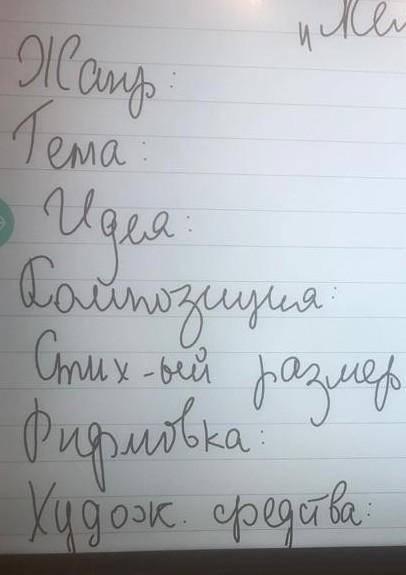 Жанр:
Тема:
Идея:
Композиция:
Стих-ый размер
Рифмовка:
Худож. средства: